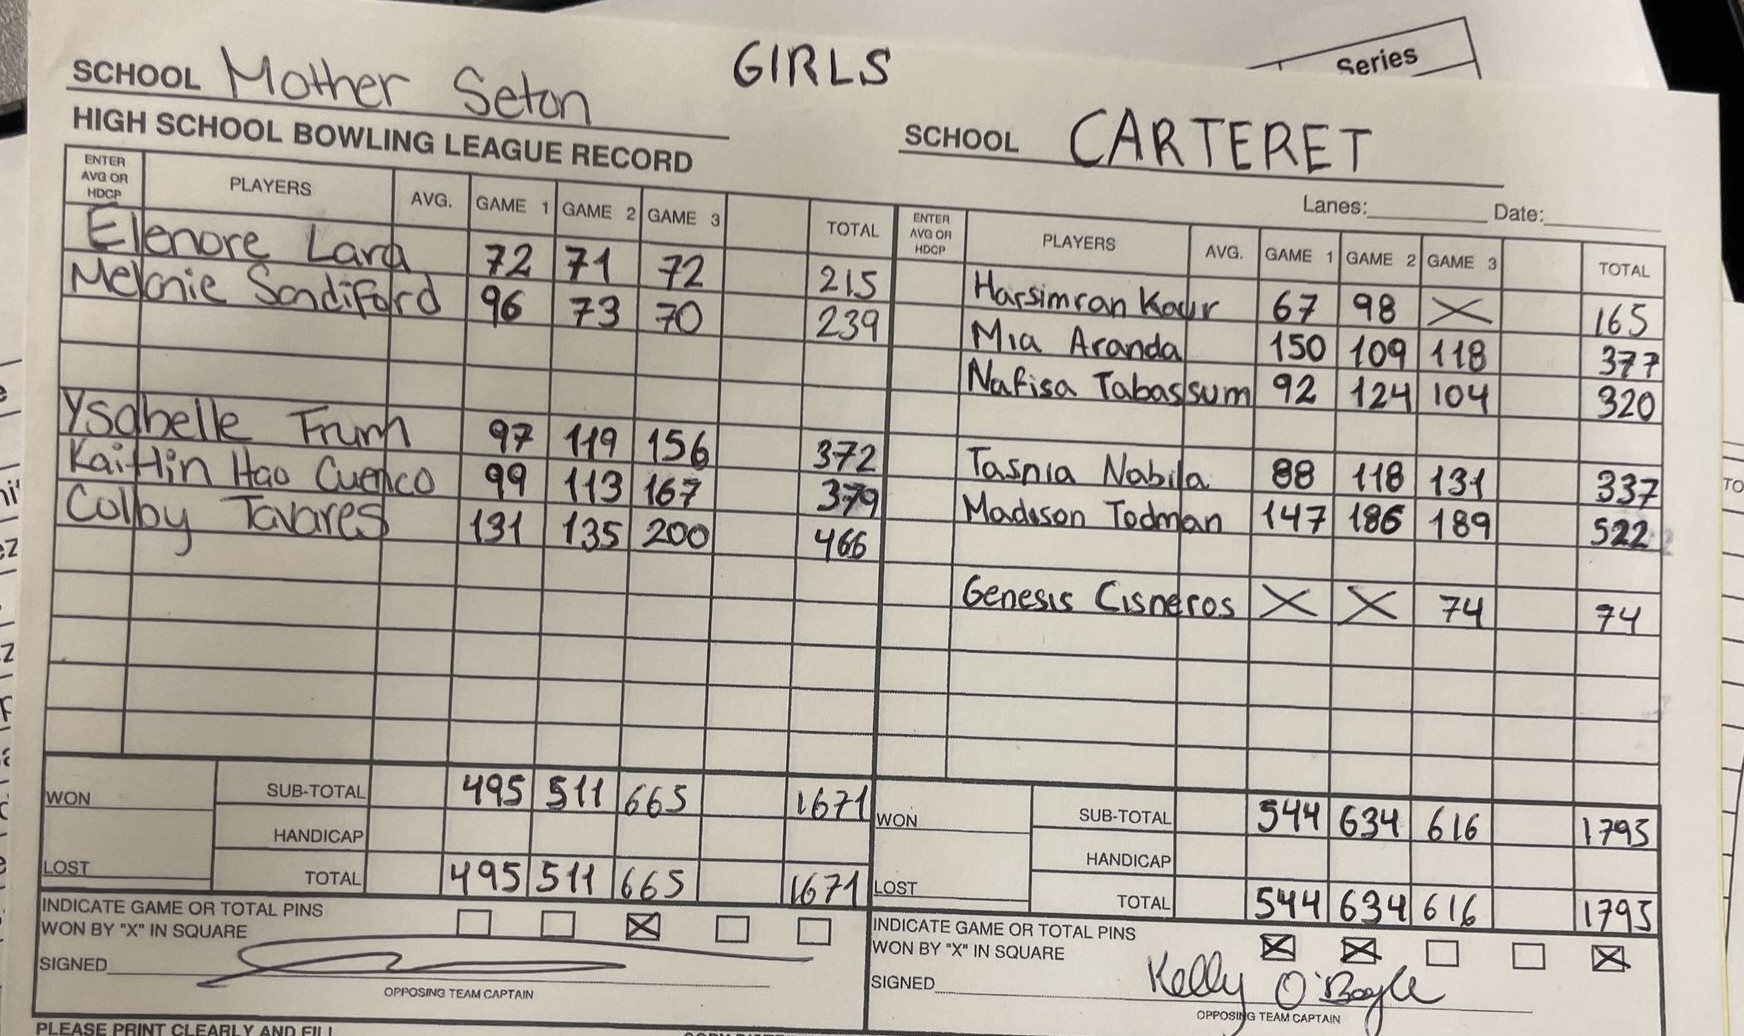 Series
GIRLS
SCHOOL Mother Seton
HIGH SCHOOL BOWLING LEAGUE RECORD
ENTER AVG OR HDCP PLAYERS AVG. GAME 1 GAME 2 GAME 3 TOTAL
Elenore Lara 72 71 72 215
Melanie Sandiford 96 73 70 239
Ysabelle Frum 97 119 156 372
Kaitlin Hao Cuenco 99 113 167 379
Colby Tavares 131 135 200 466
WON SUB-TOTAL 495 511 665 1671
HANDICAP
LOST TOTAL 495 511 665 1671
INDICATE GAME OR TOTAL PINS
WON BY "X" IN SQUARE X
SIGNED
OPPOSING TEAM CAPTAIN
PLEASE PRINT CLEARLY AND FILL
SCHOOL CARTERET
Lanes: Date:
ENTER AVG OR HDCP PLAYERS AVG. GAME 1 GAME 2 GAME 3 TOTAL
Harsimran Kaur 67 98 X 165
Mia Aranda 150 109 118 377
Nafisa Tabassum 92 124 104 320
Tasnia Nabila 88 118 131 337
Madison Todman 147 186 189 522
Genesis Cisneros X X 74 74
WON SUB-TOTAL 544 634 616 1795
HANDICAP
LOST TOTAL 544 634 616 1795
INDICATE GAME OR TOTAL PINS
WON BY "X" IN SQUARE X X X
SIGNED Kelly O'Boyle
OPPOSING TEAM CAPTAIN